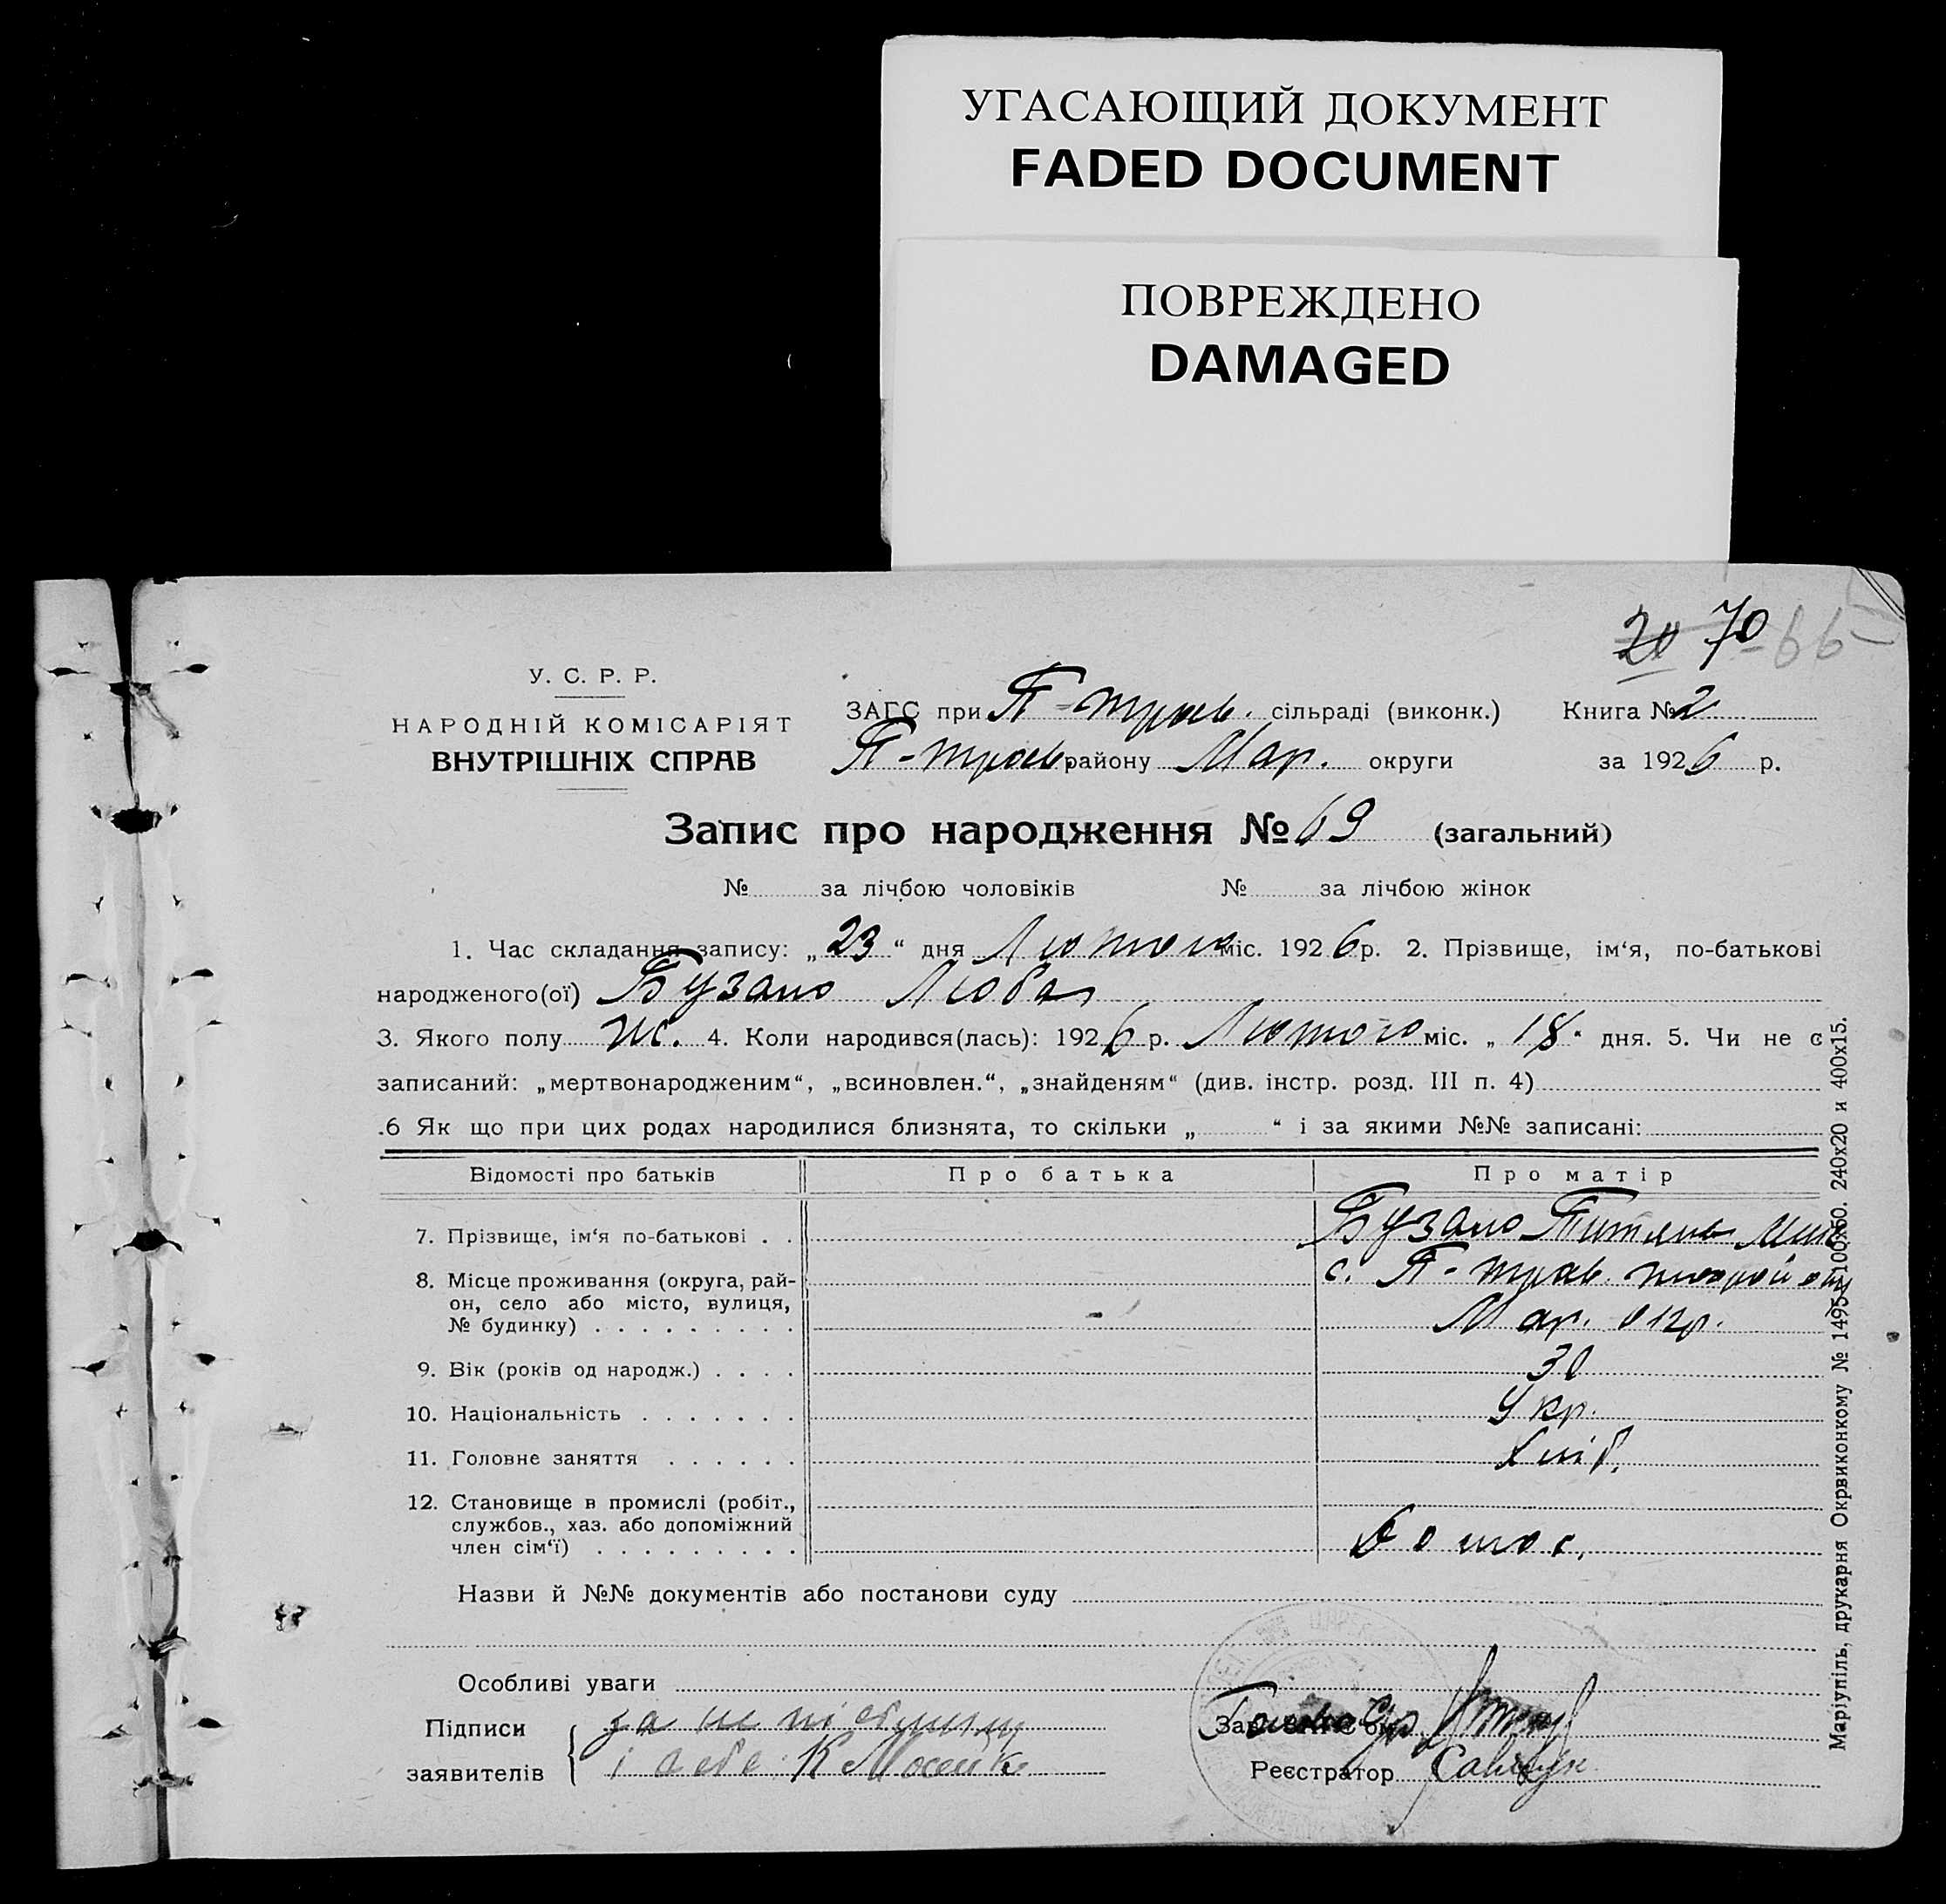 УГАСАЮЩИЙ ДОКУМЕНТ
FADED DOCUMENT
ПОВРЕЖДЕНО
DAMAGED
70 66
У. С. Р. Р.
НАРОДНІЙ КОМІСАРІЯТ
ВНУТРІШНІХ СПРАВ
ЗАГС при П-трав. сільраді (виконк.) Книга № 2
П-трав. району Мар. округи за 1926 р.
Запис про народження № 69 (загальний)
№ за лічбою чоловіків № за лічбою жінок
1. Час складання запису: „23“ дня Лютого міс. 1926 р. 2. Прізвище, ім‘я, по-батькові
народженого(ої) Бузало Люба
3. Якого полу ж. 4. Коли народився(лась): 1926 р. Лютого міс. „18“ дня. 5. Чи не є
записаний: „мертвонародженим“, „всиновлен.“, „знайденям“ (див. інстр. розд. III п. 4)
.6 Як що при цих родах народилися близнята, то скільки „ “ і за якими №№ записані:
Відомості про батьків Про батька Про матір
7. Прізвище, ім‘я по-батькові . . Бузало
8. Місце проживання (округа, рай- с. П-трав.
он, село або місто, вулиця,
№ будинку) . . . . . . . . . Мар. окр.
9. Вік (років од народж.) . . . . 30
10. Національність . . . . . . . Укр.
11. Головне заняття . . . . . . Хліб.
12. Становище в промислі (робіт.,
службов., хаз. або допоміжний
член сім‘ї) . . . . . . . . .
Назви й №№ документів або постанови суду
Особливі уваги
Підписи за
заявителів і себе К
Реєстратор
Маріупіль, друкарня Окрвиконкому № 1495—100х50. 240х20 и 400х15.